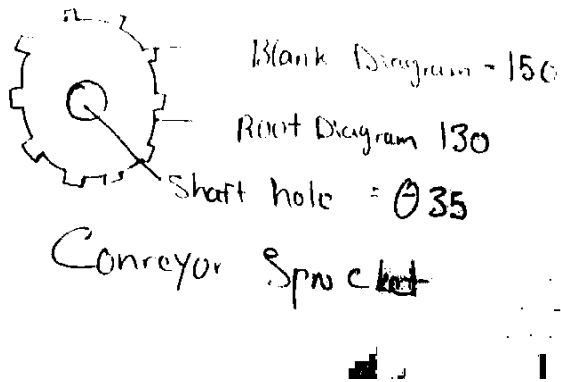 Blank Diagram - 150
Root Diagram 130
Shaft hole = Ø 35
Conveyor Sprocket